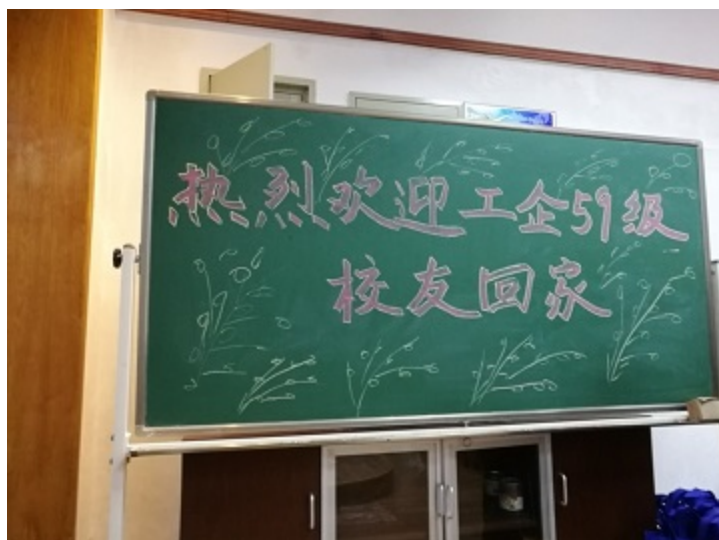 热烈欢迎工企59级
校友回家